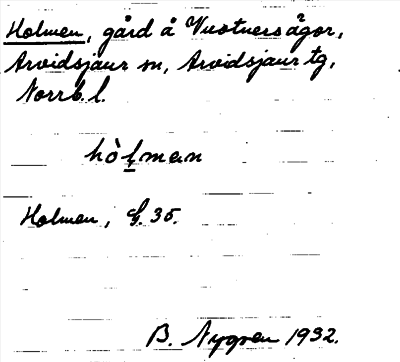 Holmen, gård å Vuotners ågor,
Arvidsjaur sn, Arvidsjaur tg,
Norrb. l.
hòl̲man
Holmen, G. 35.
B. Nygren 1932.